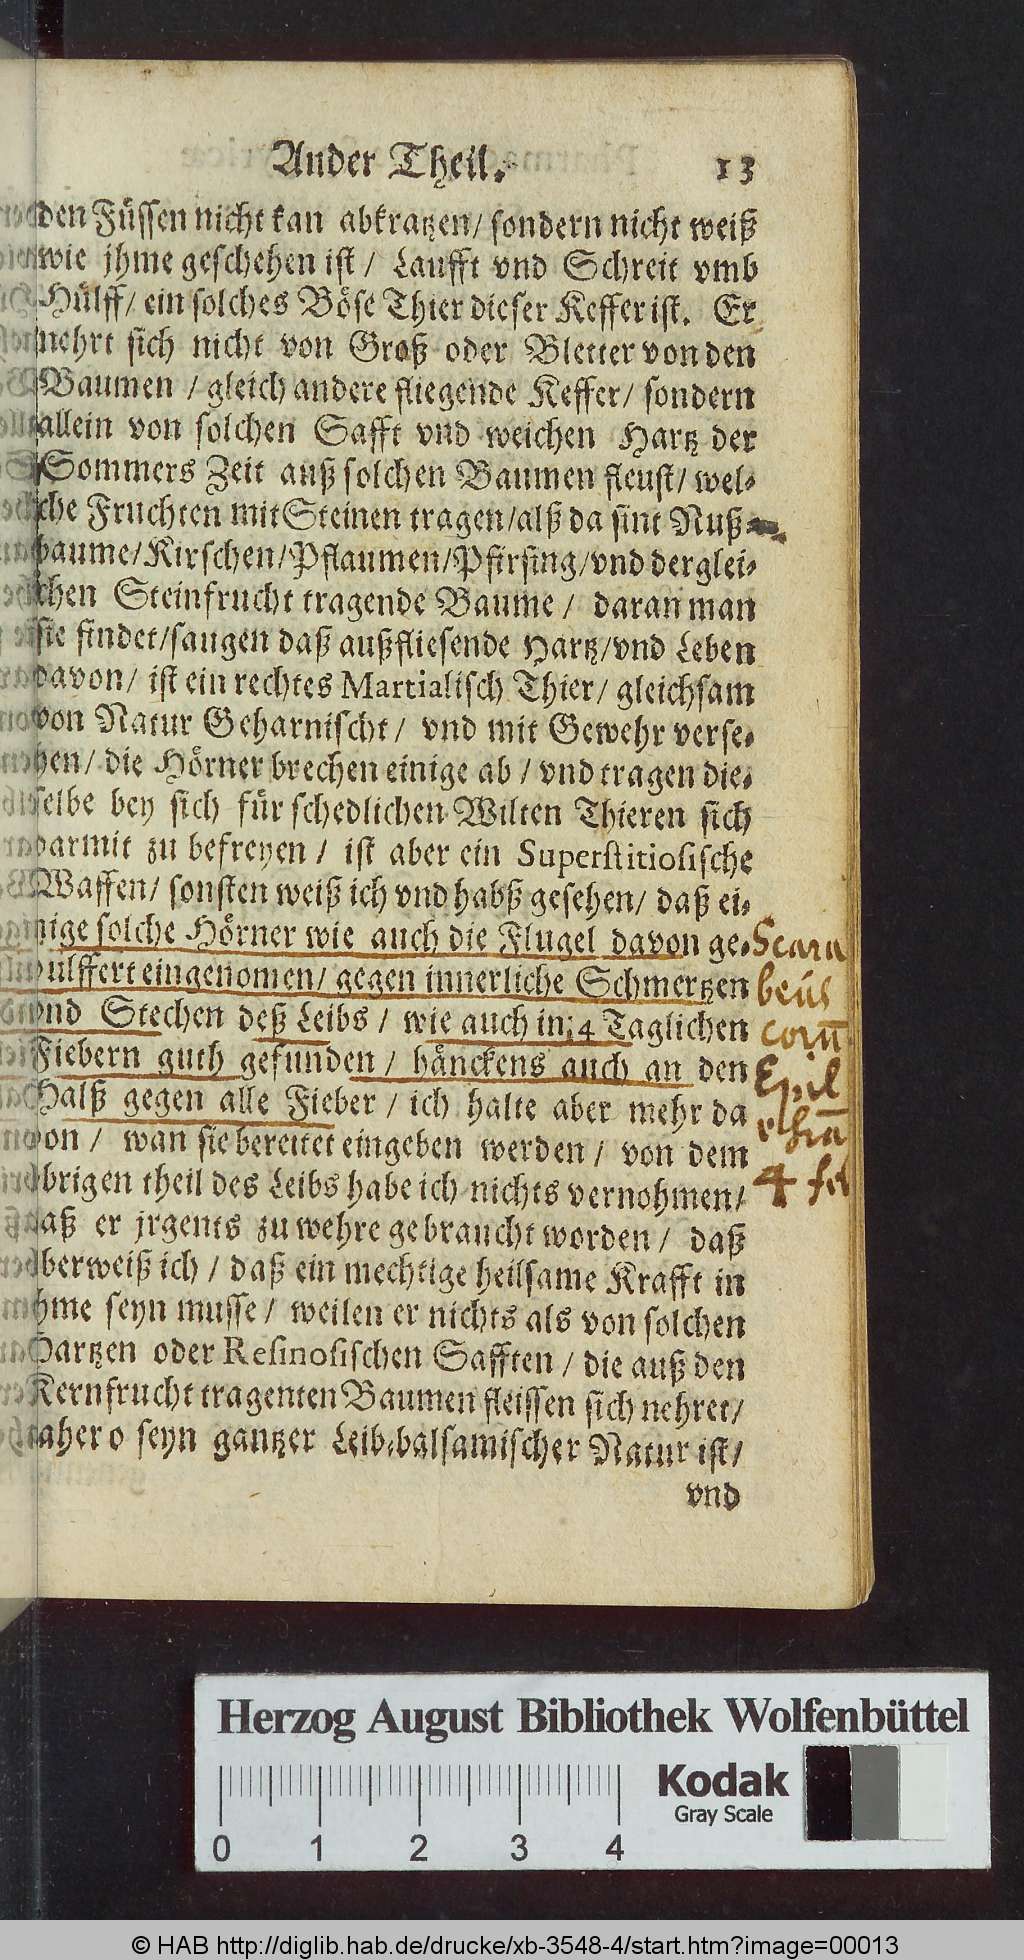 Ander Theil. 13
den Füssen nicht kan abkratzen/ sondern nicht weiß
wie jhme geschehen ist / Laufft vnd Schreit vmb
Hülff/ ein solches Böse Thier dieser Keffer ist. Er
nehrt sich nicht von Graß oder Bletter von den
Baumen / gleich andere fliegende Keffer/ sondern
allein von solchen Safft vnd weichen Hartz der
Sommers Zeit auß solchen Baumen fleust/ wel-
che Fruchten mit Steinen tragen/alß da sint Nuß-
baume/Kirschen/Pflaumen/Pfirsing/vnd derglei-
chen Steinfrucht tragende Baume / daran man
sie findet/saugen daß außfliesende Hartz/vnd Leben
davon/ ist ein rechtes Martialisch Thier/ gleichsam
von Natur Geharnischt/ vnd mit Gewehr verse-
hen/ die Hörner brechen einige ab / vnd tragen die-
selbe bey sich für schedlichen Wilten Thieren sich
darmit zu befreyen / ist aber ein Superstitiosische
Waffen/ sonsten weiß ich vnd habß gesehen/ daß ei-
nige solche Hörner wie auch die Flugel davon ge-
pulffert eingenomen/ gegen innerliche Schmertzen
vnd Stechen deß Leibs / wie auch in 4 Taglichen
Fiebern guth gefunden / hänckens auch an den
Halß gegen alle Fieber / ich halte aber mehr da
von / wan sie bereitet eingeben werden / von dem
übrigen theil des Leibs habe ich nichts vernohmen/
daß er jrgents zu wehre gebraucht worden / daß
aber weiß ich / daß ein mechtige heilsame Krafft in
jhme seyn musse / weilen er nichts als von solchen
Hartzen oder Resinosischen Safften / die auß den
Kernfrucht tragenten Baumen fleissen sich nehret/
dahero seyn gantzer Leib balsamischer Natur ist/
vnd
Scara
beus
corn
4
Herzog August Bibliothek Wolfenbüttel
Kodak
Gray Scale
0 1 2 3 4
© HAB http://diglib.hab.de/drucke/xb-3548-4/start.htm?image=00013